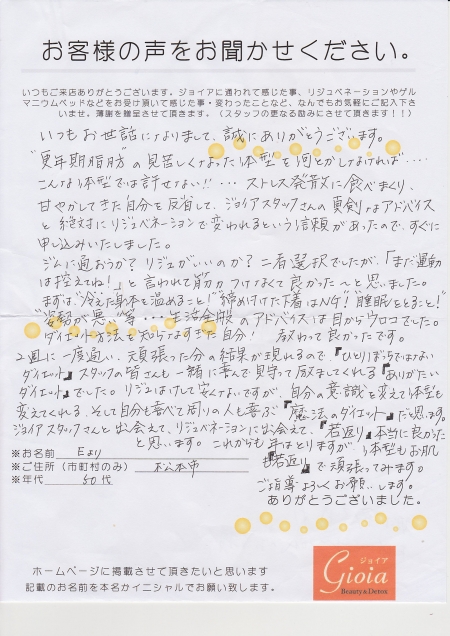 お客様の声をお聞かせください。
いつもご来店ありがとうございます。ジョイアに通われて感じた事、リジュベネーションやゲル
マニウムベッドなどをお受け頂いて感じた事・変わったことなど、なんでもお気軽にご記入下
さいませ。薄謝を贈呈させて頂きます。(スタッフの更なる励みにさせて頂きます!!!)
いつもお世話になりまして、誠にありがとうございます。
"更年期脂肪"の見苦しくなった体型を何とかしなければ‥‥
こんな体型では許せない!!‥‥ストレス発散に食べまくり、
甘やかしてきた自分を反省して、ジョイアスタッフさんの真剣なアドバイス
と絶対にリジュベネーションで変われるという信頼があったので、すぐに
申し込みいたしました。
ジムに通おうか?リジュがいいのか?二者選択でしたが、「まだ運動
は控えてね!」と言われて筋力つけなくて良かった〜と思いました。
まずは"冷えた身体を温めること!""締め付けた下着はNG!""睡眠をとること!"
"姿勢が悪い"等‥‥生活全般のアドバイスは目からウロコでした。
ダイエット方法を知らなすぎた自分! 教わって良かったです。
2週に一度通い、頑張った分の結果が現れるので『ひとりぼっちではない
ダイエット』スタッフの皆さんも一緒に喜んで見守って励ましてくれる『ありがたい
ダイエット』でした。リジュはけして安くないですが、自分の意識を変えて体型も
変えてくれる、そして自分も喜べて周りの人も喜ぶ『魔法のダイエット』だと思います。
ジョイアスタッフさんと出会えて、リジュベネーションに出会えて、『若返り』本当に良かった
と思います。これからも年はとりますが、体型もお肌
も『若返り』で頑張ってみます。
ご指導よろしくお願いします。
※お名前 Eより
※ご住所(市町村のみ) 松本市
※年代 50代
ありがとうございました。
ホームページに掲載させて頂きたいと思います
記載のお名前を本名かイニシャルでお願い致します。
ジョイア
Gioia
Beauty&Detox